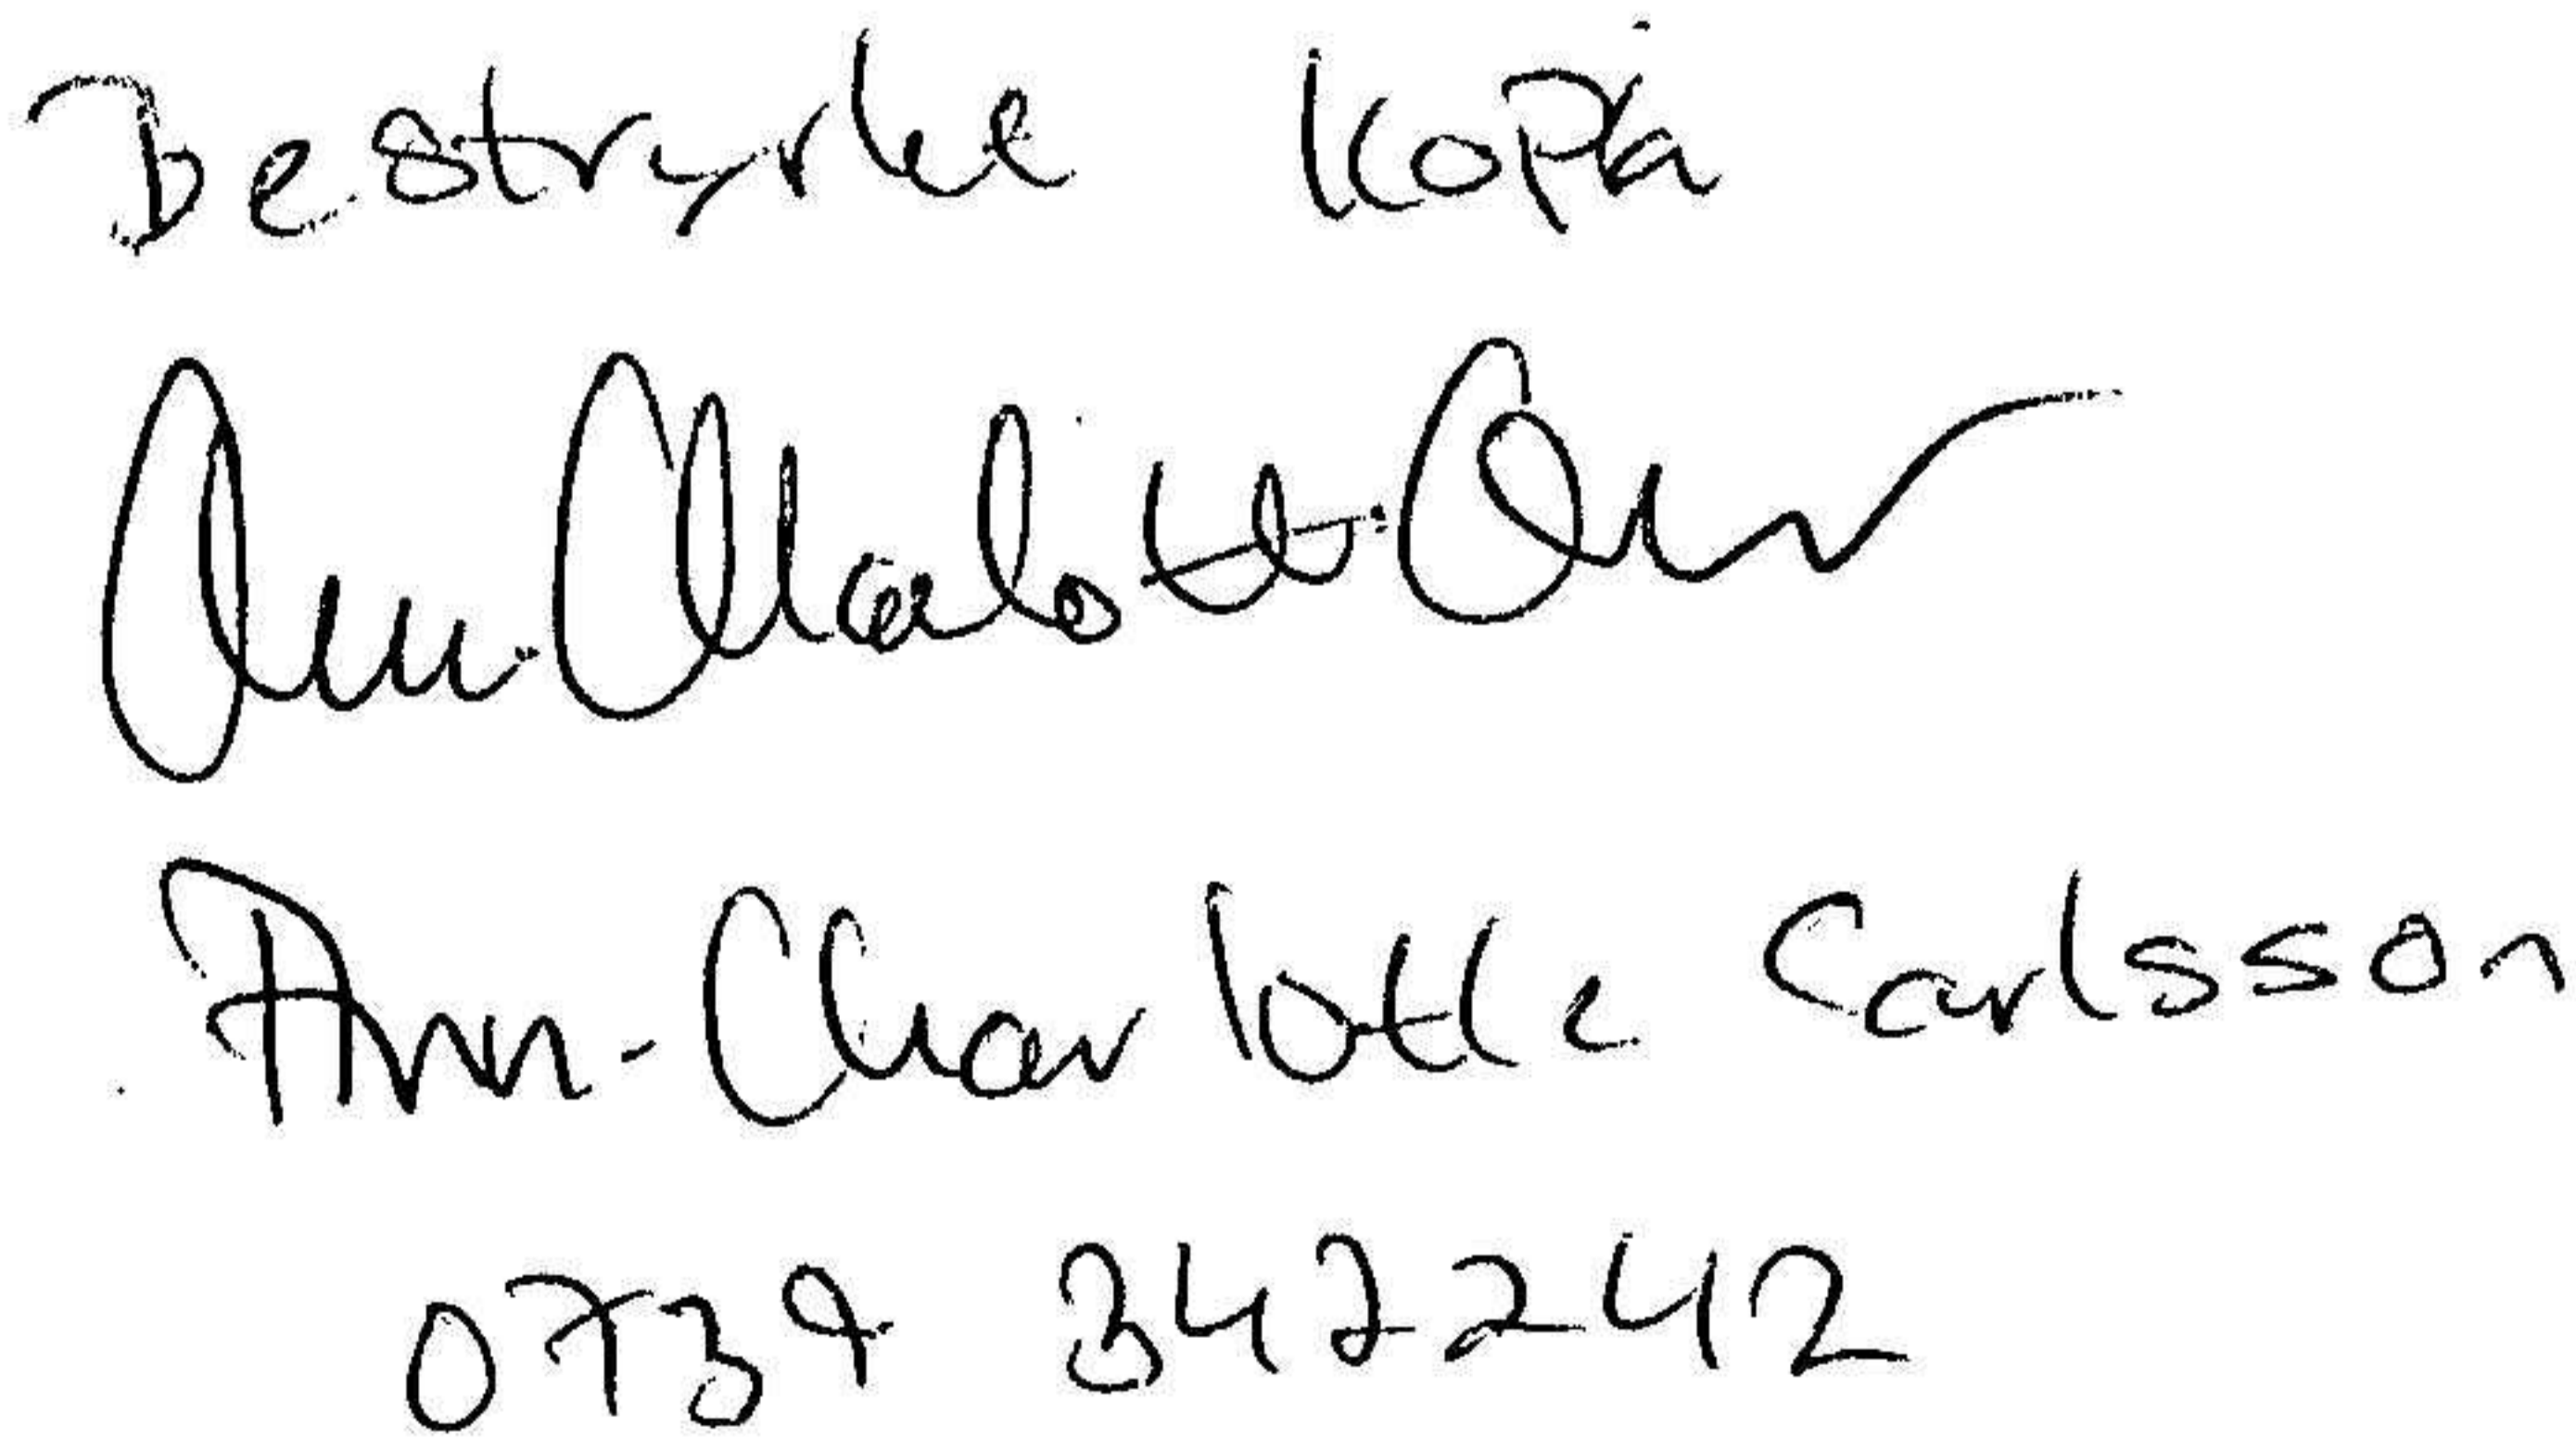 Bestryrke kopia
Ann-Charlotte Car
Ann-Charlotte Carlsson
0739 342242